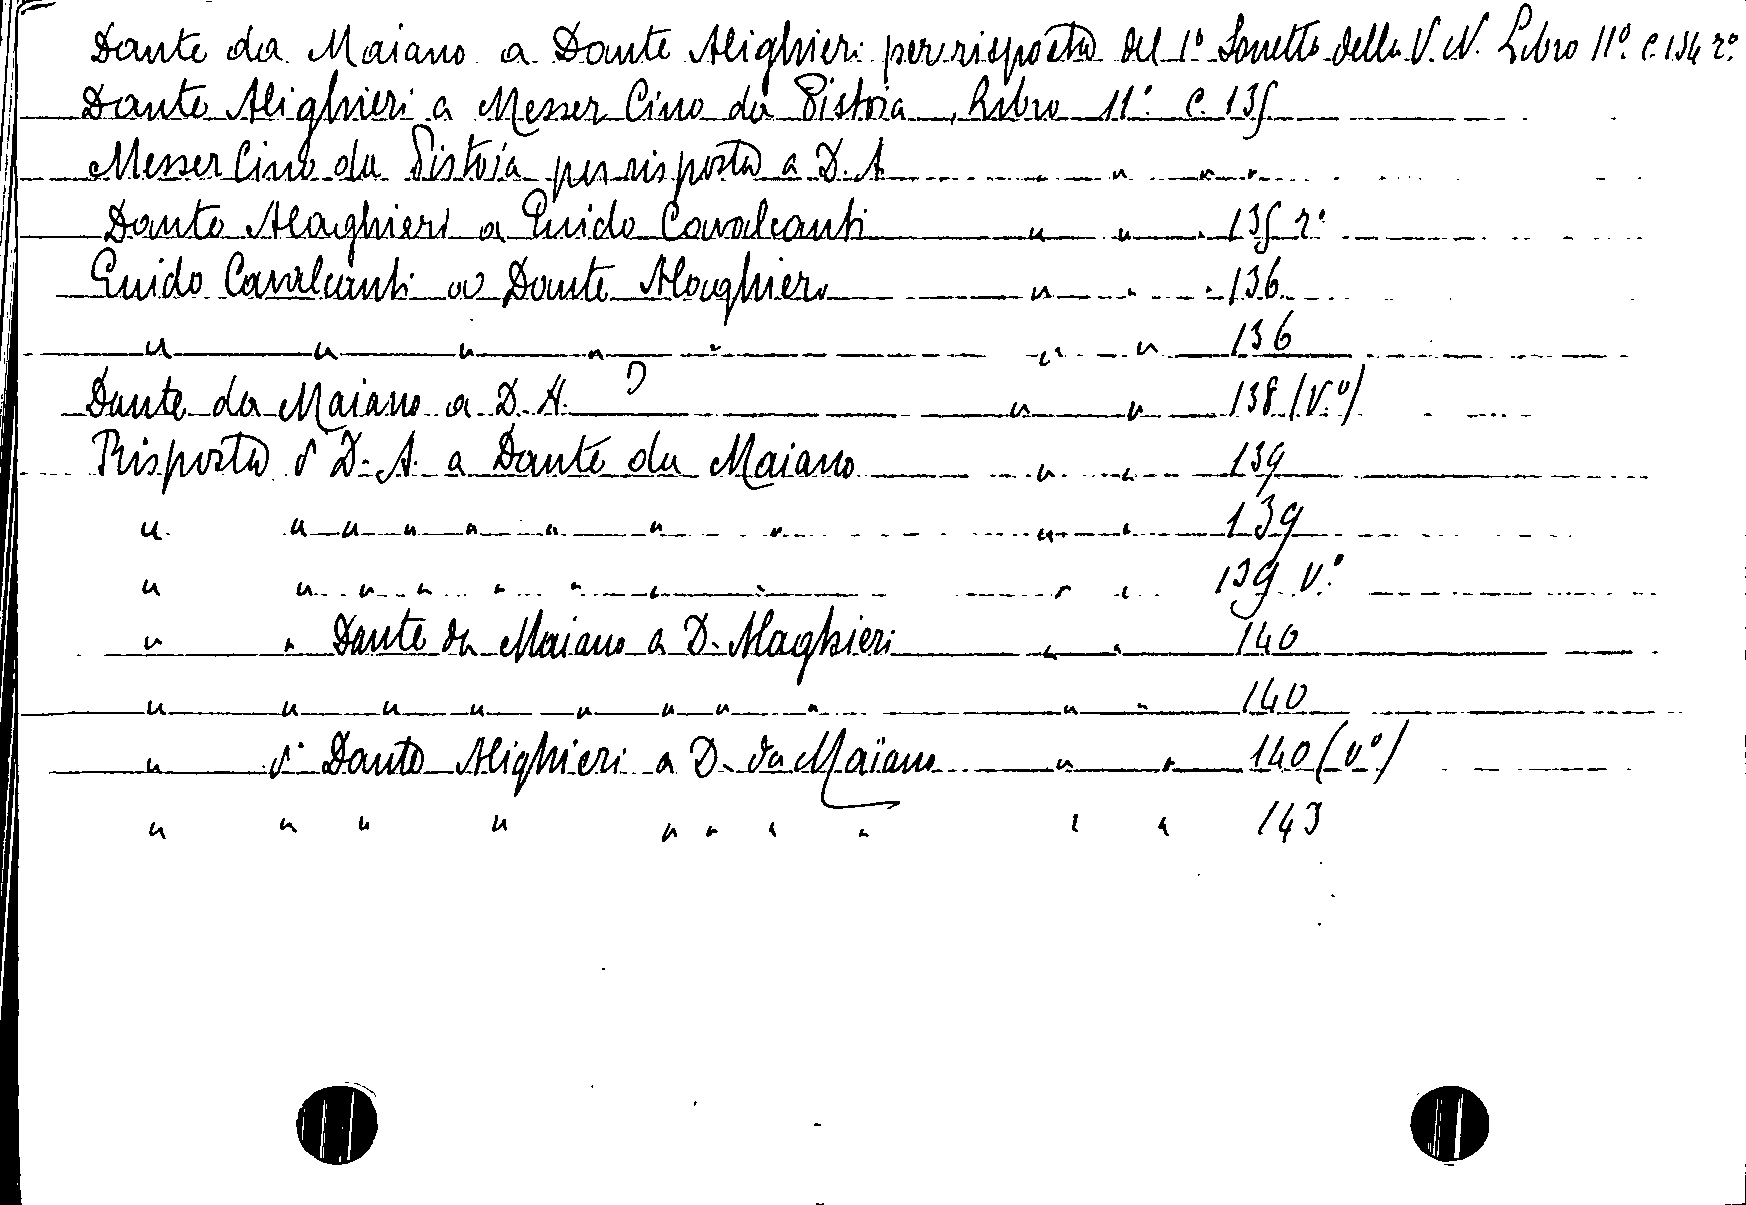 Dante da Maiano a Dante Alighieri per risposta del 1º Sonetto della V. N. Libro 11º c. 134 rº
Dante Alighieri a Messer Cino da Pistoia, Libro 11º c. 135
Messer Cino da Pistoia per risposta a D. A. " " " "
Dante Alaghieri a Guido Cavalcanti " " " 135 rº
Guido Cavalcanti a Dante Alaghieri " " " 136
" " " " " " " 136
Dante da Maiano a D. A. " " 138 (Vº)
Risposta d D. A. a Dante da Maiano " " 139
" " " " " " " " " " 139
" " " " " " " " " " 139 Vº
" " Dante da Maiano a D. Alaghieri " " 140
" " " " " " " " " " 140
" d' Dante Alighieri a D. da Maiano " " 140 (vº)
" " " " " " " " " " 143